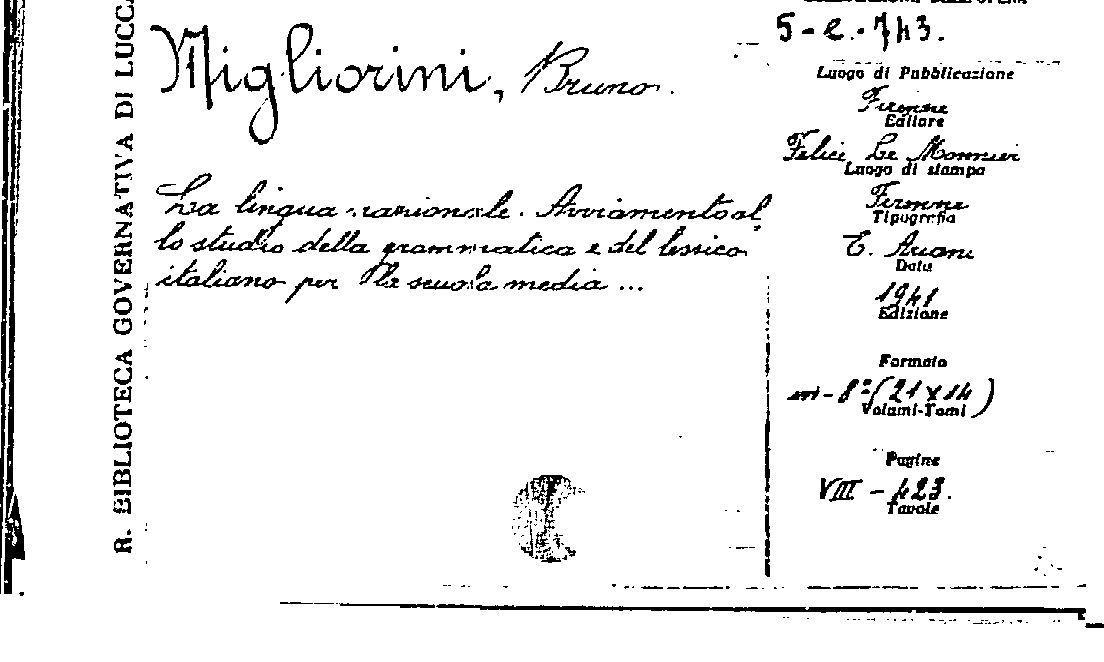 R. BIBLIOTECA GOVERNATIVA DI LUCCA
Migliorini, Bruno.
La lingua nazionale. Avviamento al
lo studio della grammatica e del lessico
italiano per le scuola media ...
5-e.-743.
Luogo di Pubblicazione
Firenze
Editore
Felice Le Monnier
Luogo di stampa
Firenze
Tipografia
E. Ariani
Data
1941
Edizione
Formato
in-8°(21x14)
Volumi-Tomi
Pagine
VIII - 423.
Tavole